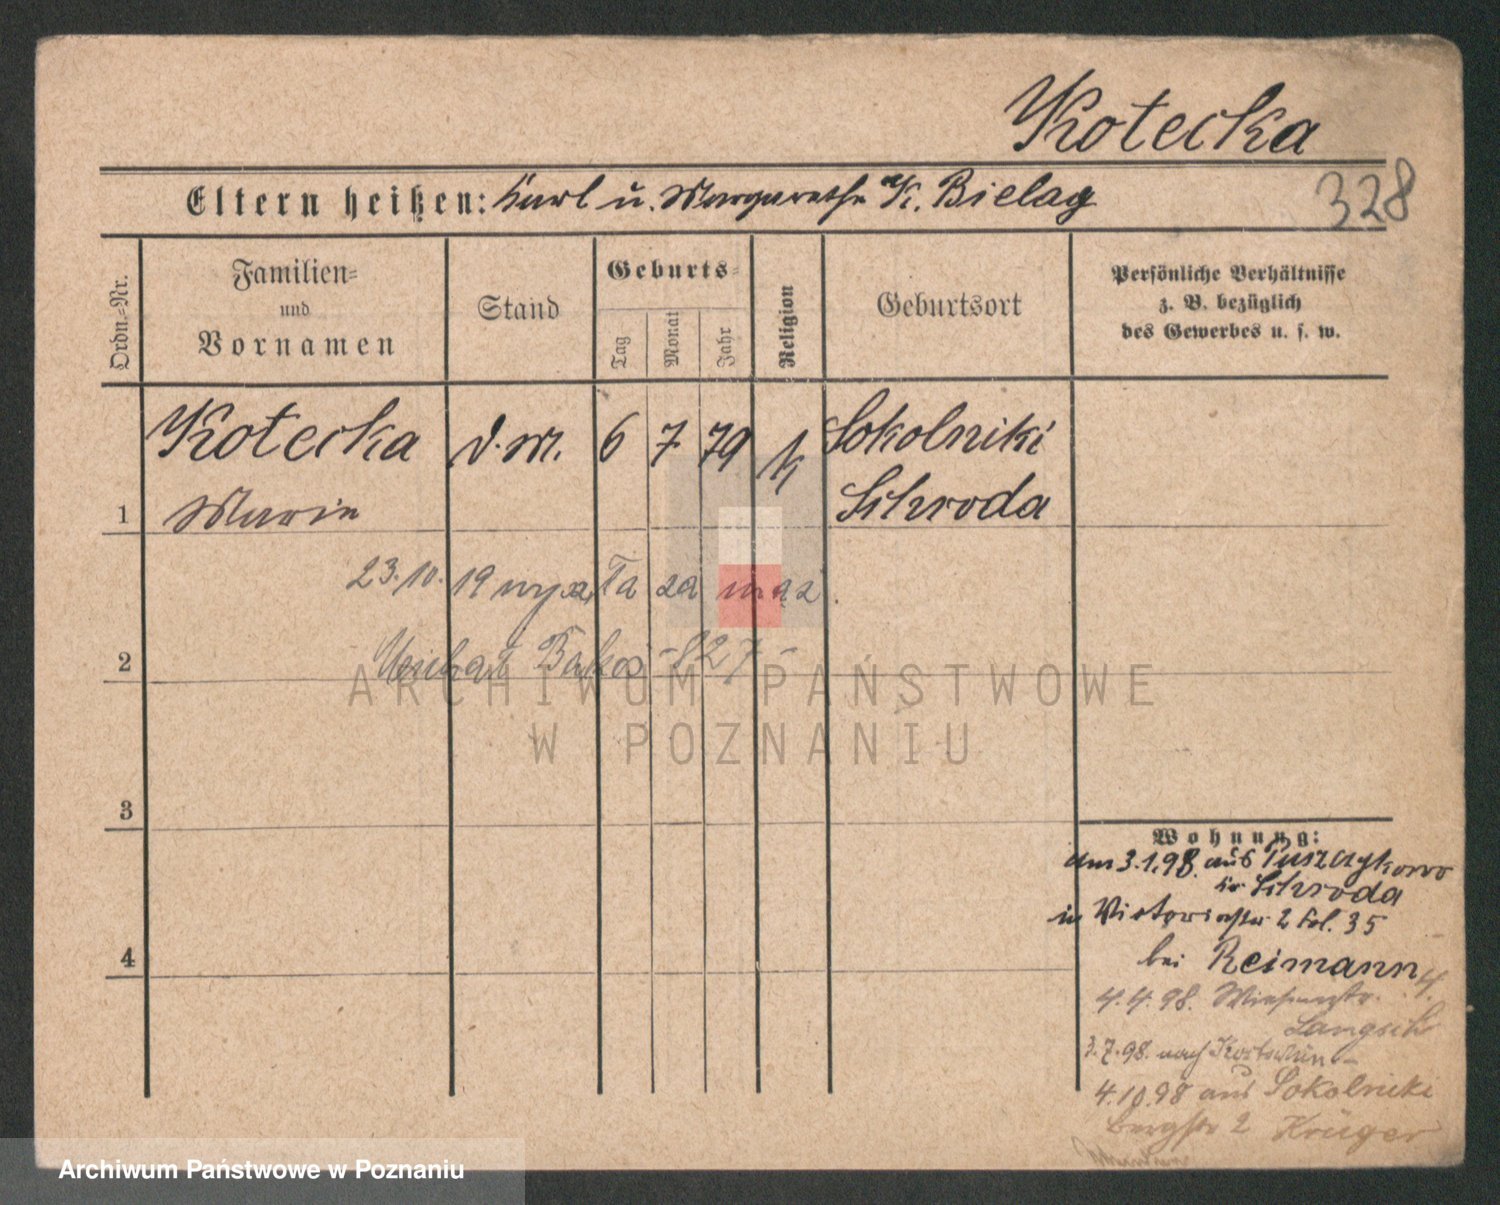 Kotecka
Eltern heißen: Karl u. Margarethe K. Bielag
328
Ordn.-Nr.
Familien-
und
Vornamen
Stand
Geburts-
Tag
Monat
Jahr
Religion
Geburtsort
Persönliche Verhältnisse
z. B. bezüglich
des Gewerbes u. s. w.
Kotecka d. M. 6 7 79 k Sokolniki
1 Marie Schroda
23.10.19 wysz Ta za mąż.
Michał Bakoś - 827 -
2
ARCHIWUM PAŃSTWOWE
W POZNANIU
3
Wohnung:
am 3.1.98. aus Puszczykowo
Kr Schroda
in Victoriastr. 2 Fol. 35
bei Reimann
4
4.4.98. Wiesenstr. 4.
Langsch
3.7.98. nach Kostschin -
4.10.98 aus Sokolniki
Bergstr 2 Krüger
Archiwum Państwowe w Poznaniu